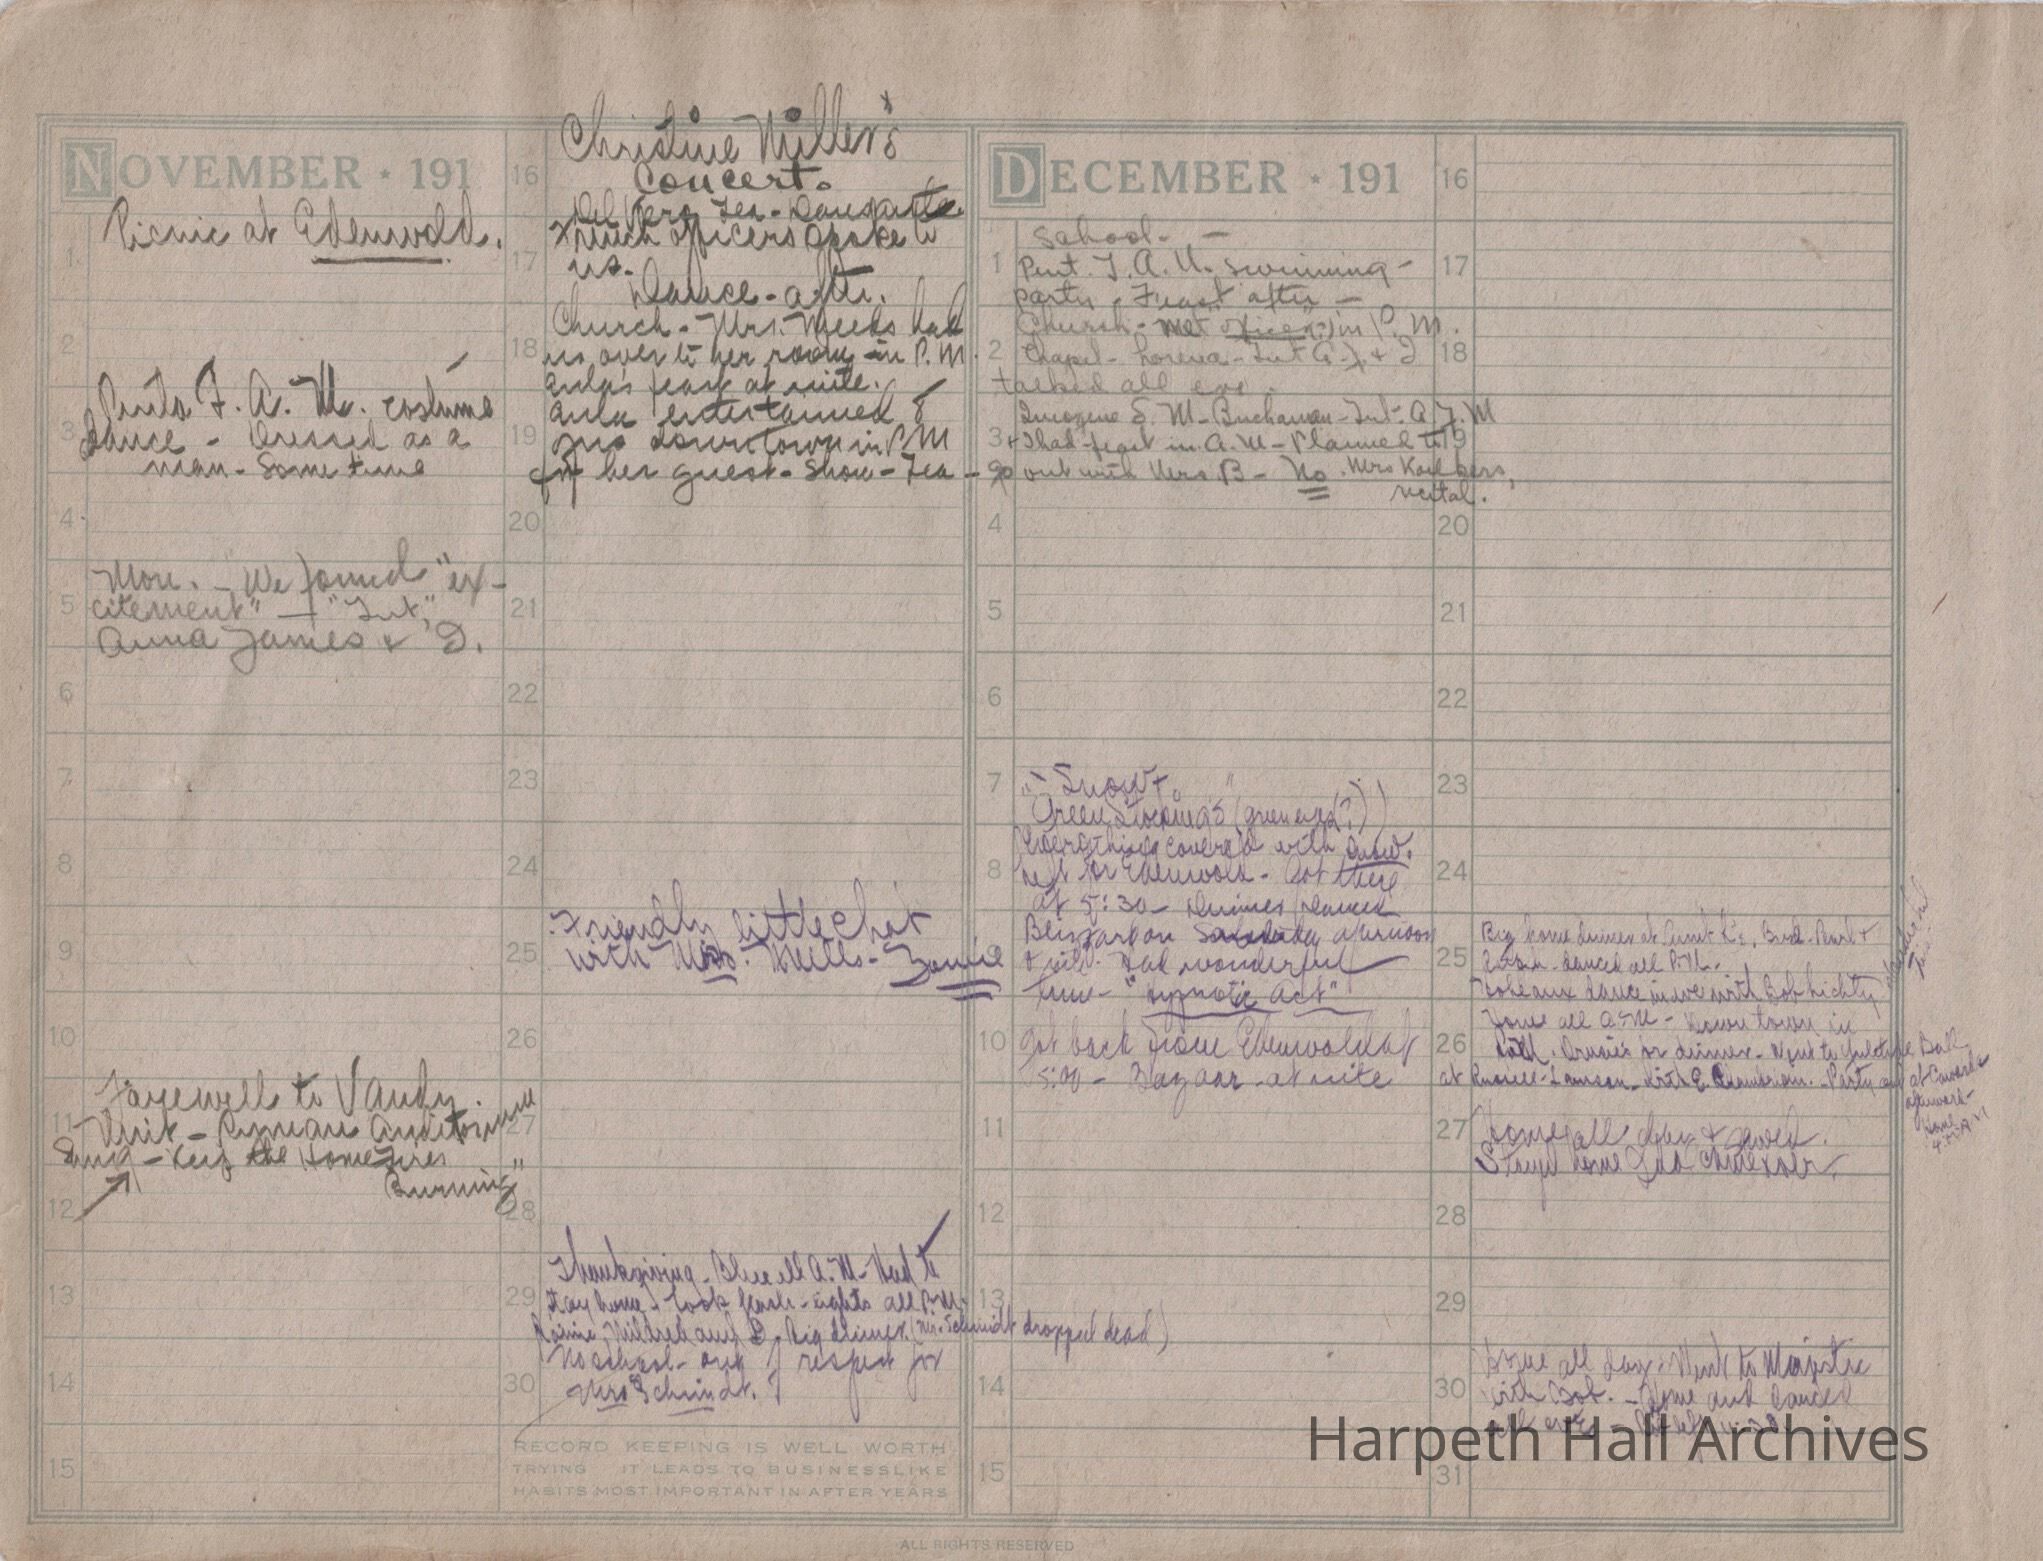 NOVEMBER · 191
Picnic at Edenwold.
1
2
3
Penta F. A. M. costume
dance - Dressed as a
man - Some time
4
5
Mon. - We joined "ex-
citement" - "Int",
Anna James & D.
6
7
8
9
10
11
Farewell to Vandy.
Unit - Ryman Auditorium
Sung - Keep the Home Fires
Burning"
12
13
14
15
Christine Miller's
16
Concert.
Del Vero Tea - Dansante
French officers spoke to
17
us.
Dance - after.
Church - Mrs. Meeks had
18
us over to her room in P.M.
Anla's feast at nite.
Anla entertained 8
19
of us downtown in P.M
for her guest - Show - Tea -
20
21
22
23
24
Friendly little chat
25
with Miss. Mills -
26
27
28
Thanksgiving - Blue all A. M - Had to
29
stay home. Took flash-lights all P.M.
Mildred and D. Big dinner (Mr. Schmidt dropped dead)
No school - out of respect for
30
Mrs Schmidt.
RECORD KEEPING IS WELL WORTH
TRYING IT LEADS TO BUSINESSLIKE
HABITS MOST IMPORTANT IN AFTER YEARS
DECEMBER · 191
School -
1
Pent. T. A. U. swimming -
party. Feast after -
Church - Met "officer" in P. M.
2
Chapel - Lorena - Int A. J. & I
talked all eve.
Imogene S. M - Buchanan - Int - A J. M
3
& I had feast in A. M - Planned to
go out with Mrs B - No. Mrs
recital.
4
5
6
7
"Snow".
Green Stockings (green eyes(?))
Everything covered with snow.
8
left for Edenwold - Got there
at 5:30 - Dinner danced
Blizzard on Saturday afternoon
9
& nite. Had wonderful
time - "Hypnotic Act"
10
Got back from Edenwold at
5:00 - Bazaar - at nite
11
12
13
14
15
16
17
18
19
20
21
22
23
24
Big home dinner at Aunt K's, Bud - Pearl &
25
danced all P.M.
dance in eve with Bob Lichty
Home all A.M - Downtown in
26
P.M. for dinner - Went to Yuletyde Ball
at Russell-Lamson - with E. - Party at
afterward -
Home
4:30 A M
27
Home all day & sewed.
Stayed home
28
29
Home all day. Went to Majestic
30
with Bob. - Home and danced
all eve -
31
Harpeth Hall Archives
ALL RIGHTS RESERVED